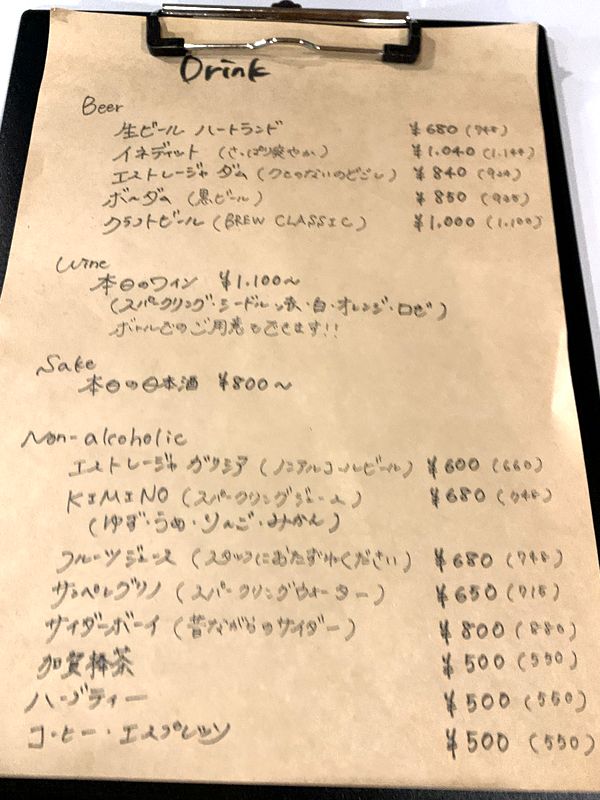 Drink
Beer
生ビール ハートランド ¥680(748)
イネディット (さっぱり爽やか) ¥1.040(1.144)
エストレージャ ダム (クセのないのどごし) ¥840(924)
ボールダム (黒ビール) ¥850(935)
クラフトビール (BREW CLASSIC) ¥1.000(1.100)
Wine
本日のワイン ¥1.100~
(スパークリング・シードル・赤・白・オレンジ・ロゼ)
ボトルでのご用意もできます!!
Sake
本日の日本酒 ¥800~
Non-alcoholic
エストレージャ ガリシア (ノンアルコールビール) ¥600(660)
KIMINO (スパークリングジュース) ¥680(748)
(ゆず・うめ・りんご・みかん)
フルーツジュース (スタッフにおたずねください) ¥680(748)
サンペレグリノ (スパークリングウォーター) ¥650(715)
サイダーボーイ (昔ながらのサイダー) ¥800(880)
加賀棒茶 ¥500(550)
ハーブティー ¥500(550)
コーヒー・エスプレッソ ¥500(550)